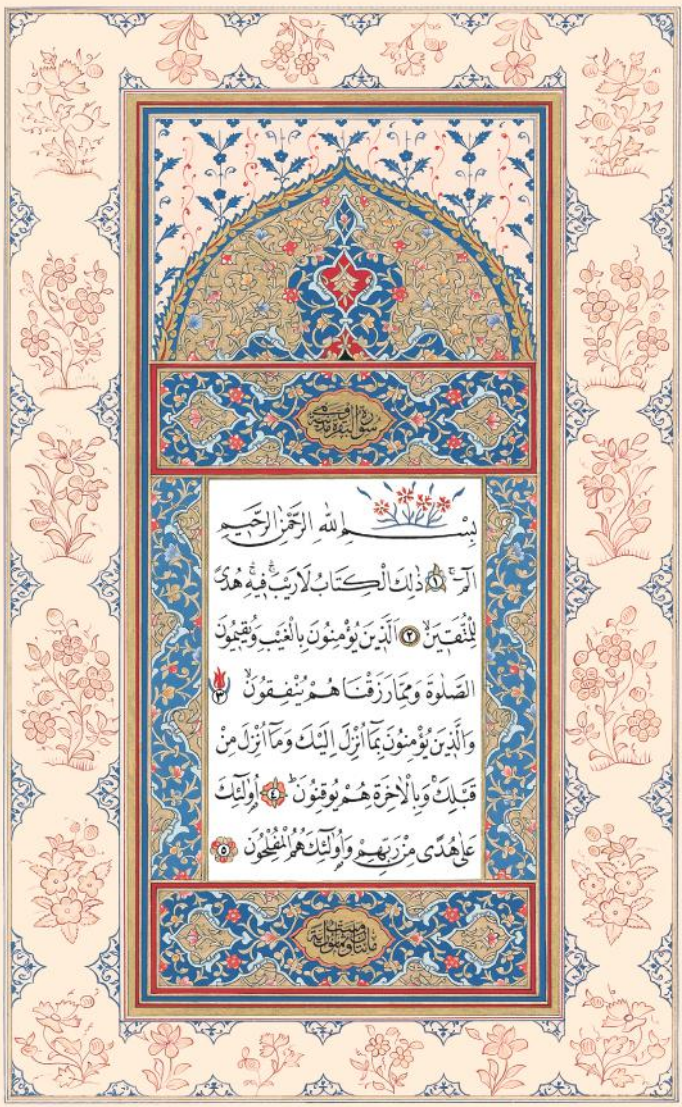 سورة البقرة مدنية وهي
بِسْمِ اللّٰهِ الرَّحْمٰنِ الرَّحٖيمِ
الٓمٓ ۚ ﴿١﴾ ذٰلِكَ الْكِتَابُ لَا رَيْبَ ۚۛ فٖيهِ ۚۛ هُدًى
لِلْمُتَّقٖينَۙ ﴿٢﴾ اَلَّذٖينَ يُؤْمِنُونَ بِالْغَيْبِ وَيُقٖيمُونَ
الصَّلٰوةَ وَمِمَّا رَزَقْنَاهُمْ يُنْفِقُونَۙ ﴿٣﴾
وَالَّذٖينَ يُؤْمِنُونَ بِمَٓا اُنْزِلَ اِلَيْكَ وَمَٓا اُنْزِلَ مِنْ
قَبْلِكَۚ وَبِالْاٰخِرَةِ هُمْ يُوقِنُونَؕ ﴿٤﴾ اُو۬لٰٓئِكَ
عَلٰى هُدًى مِنْ رَبِّهِمْ وَاُو۬لٰٓئِكَ هُمُ الْمُفْلِحُونَ ﴿٥﴾
مائتان وست وثمانون آية